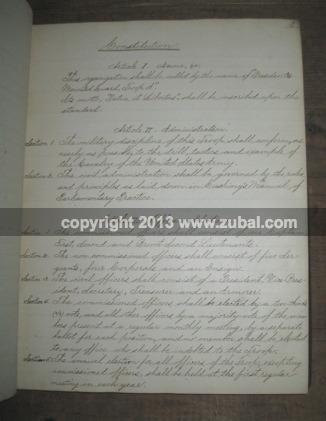 Constitution
Article I. Name, &c.
This organization shall be called by the name of
Mounted Guard, Troop A".
Its motto, shall be inscribed upon the
standard.
Article II. Administration.
Section 1. The military discipline of this Troop shall conform, as
nearly as possible, to the drill, and example of
the Cavalry of the United States Army.
Section 2. The civil administration shall be governed by the rules
and principles as laid down in Cushing's Manual of
Parliamentary Practice.
copyright 2013 www.zubal.com
First, Second and Lieutenants.
Section 2. The non commissioned officers shall consist of five Ser-
geants, four Corporals and an Ensign.
Section 3. The civil officers shall consist of a President, Vice Pres-
ident, Secretary, Treasurer and an Armorer.
Section 4. The commissioned officers shall be elected by a two thirds
vote, and all other officers by a majority vote of the mem-
bers present at a regular monthly meeting, by a separate
ballot for each position, and no member shall be elected
to any office who shall be indebted to the Troop.
Section 5. The annual election for all officers of the Troop, excepting
commissioned officers, shall be held at the first regular
meeting in each year.